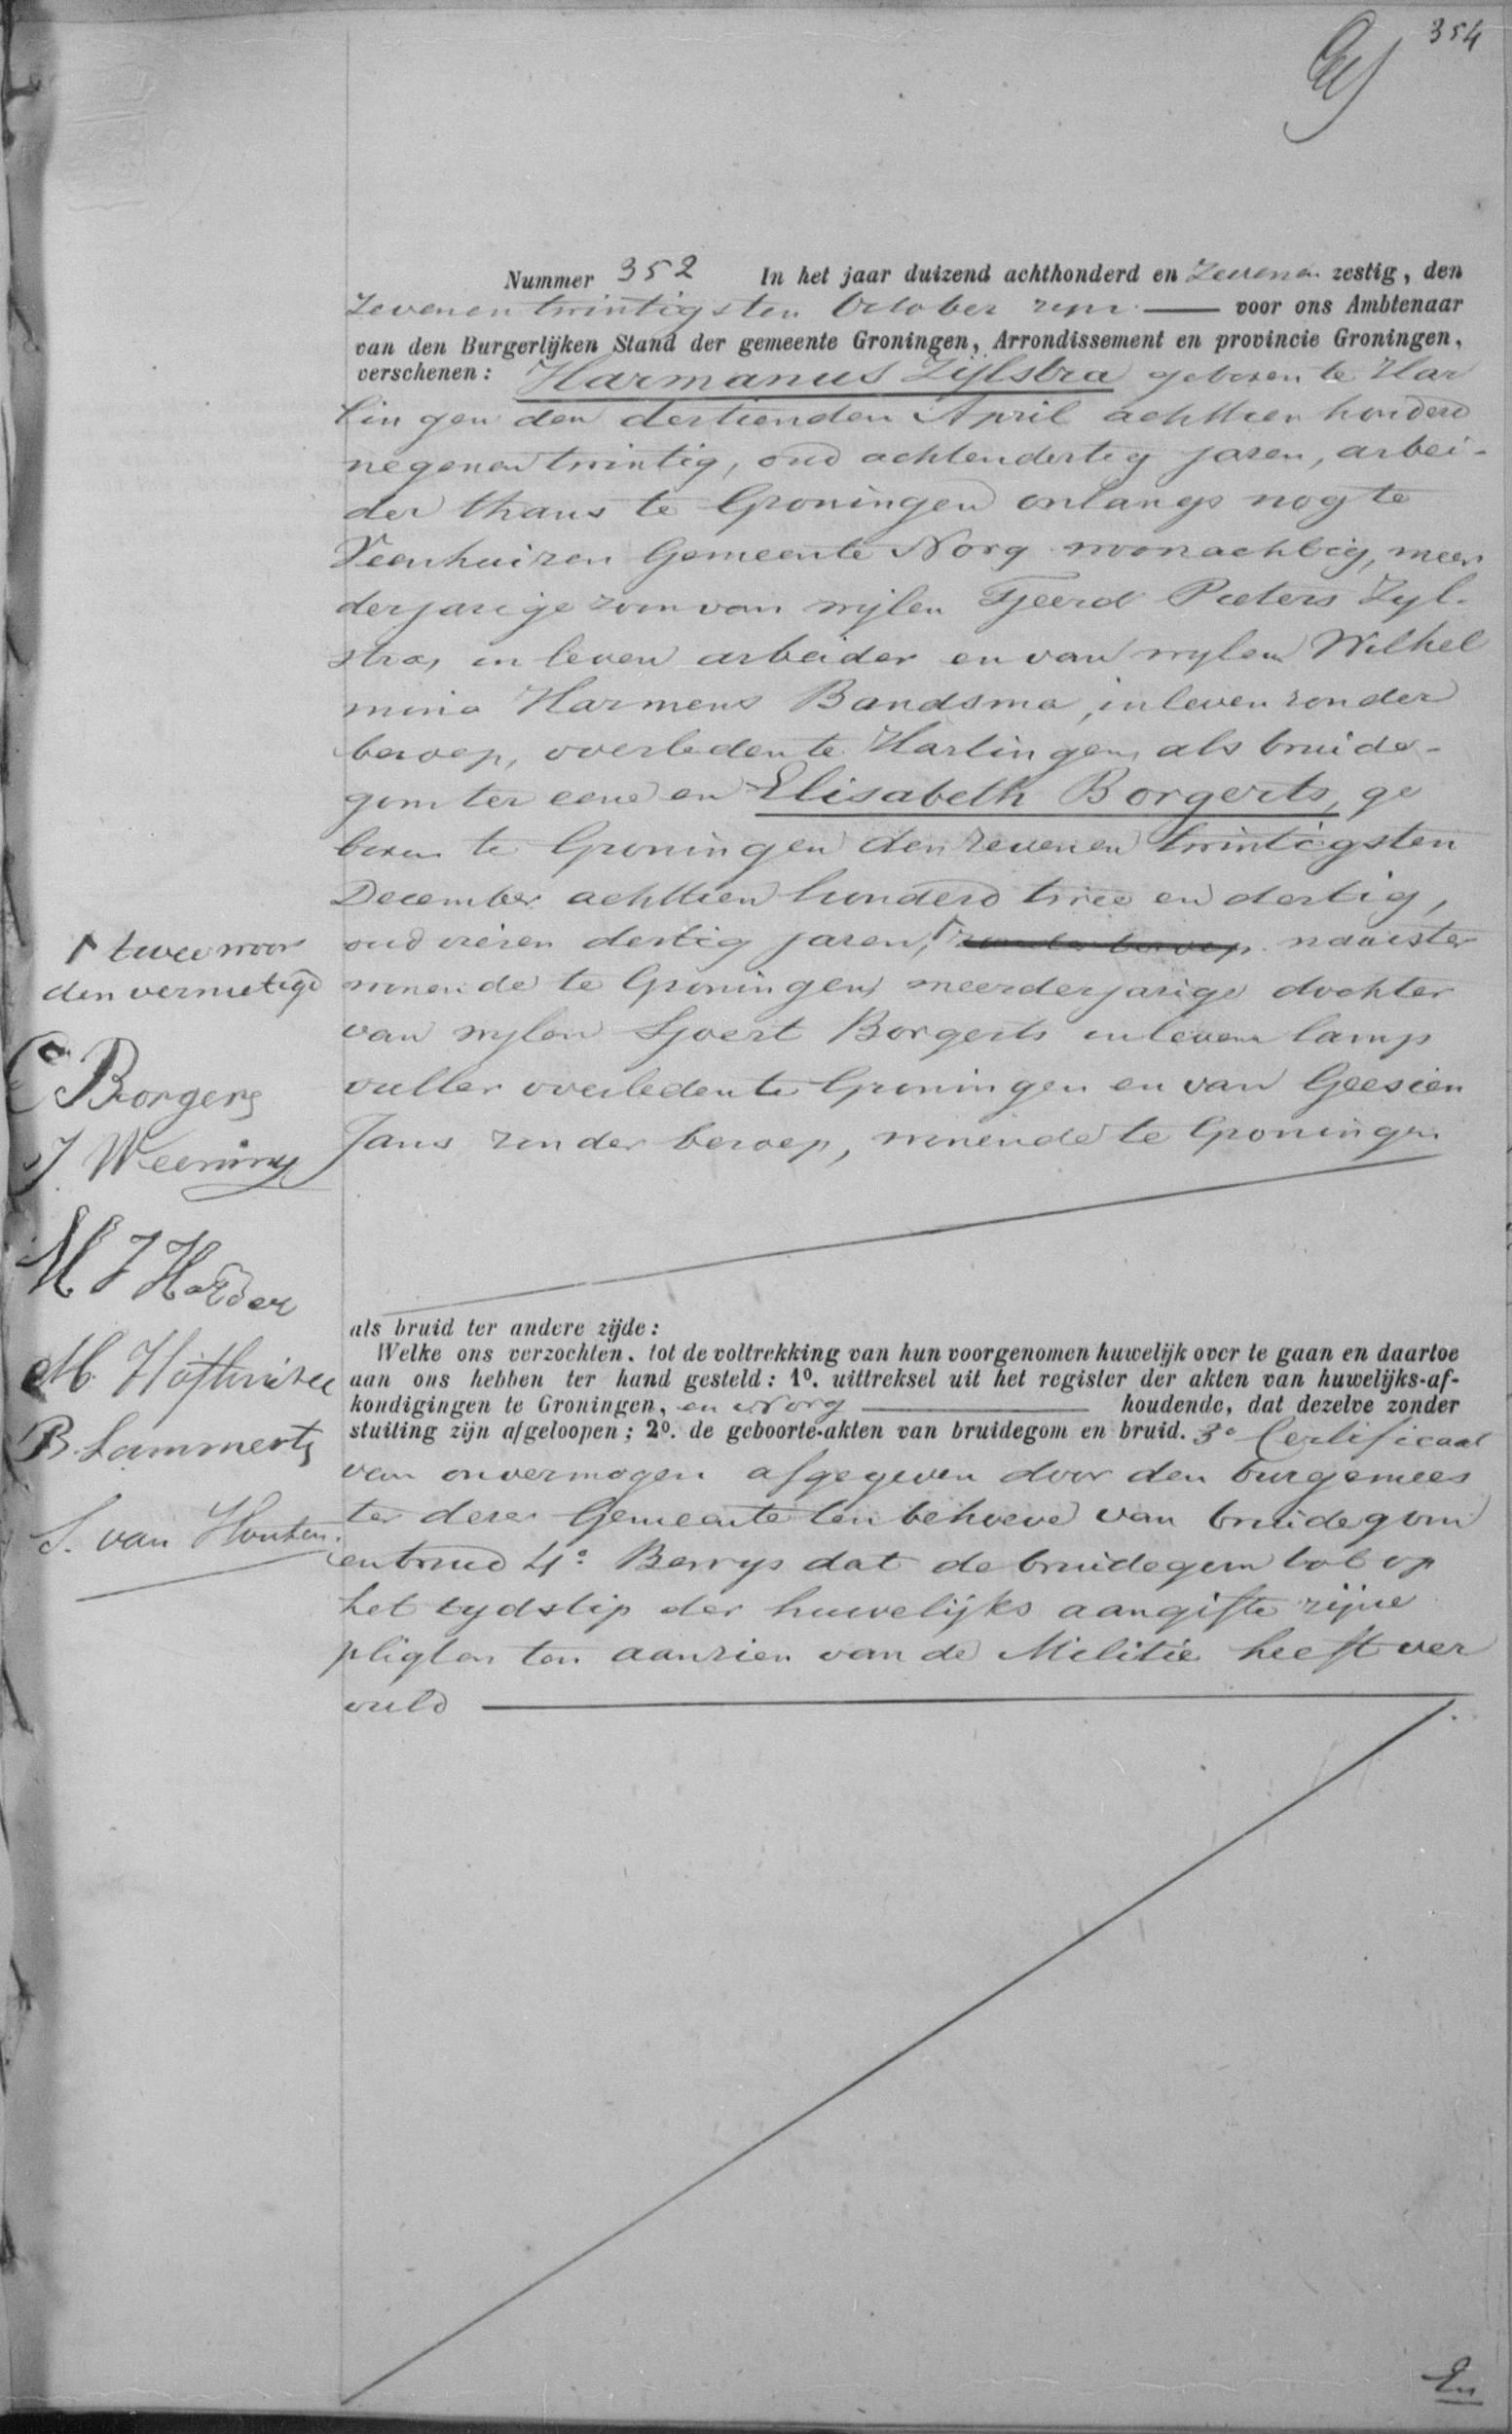 354
Nummer 352 In het jaar duizend achthonderd en Zevenen zestig, den
Zevenen twintigsten October zyn — voor ons Ambtenaar
van den Burgerlijken Stand der gemeente Groningen, Arrondissement en provincie Groningen,
verschenen: Harmanus Zijlstra geboren te Har
lingen den dertienden April achttien honderd
negenen twintig, oud achtendertig jaren, arbei-
der thans te Groningen onlangs nog te
Veenhuizen Gemeente Norg woonachtig, meer
derjarige zoon van wijlen Tjeerd Pieters Zyl-
stra, in leven arbeider en van wylen Wilhel
mina Harmens Bandsma, in leven zonder
beroep, overleden te Harlingen, als bruide-
gom ter eene en Elisabeth Borgerts, ge
boren te Groningen den zevenen twintigsten
December achttien honderd twee en dertig,
oud vieren dertig jaren, zonder beroep naaister
wonende te Groningen, meerderjarige dochter
van wylen Sjoert Borgerts in leven lamp
vuller overleden te Groningen en van Geesien
Jans zonder beroep, wonende te Groningen
twee woor
den vernietigd
C Borgers
J Weening
M J Harder
M. Hofthuizee
B Lammerts
S. van Houten.
als bruid ter andere zijde:
Welke ons verzochten. tot de voltrekking van hun voorgenomen huwelijk over te gaan en daartoe
aan ons hebben ter hand gesteld: 1º. uittreksel uit het register der akten van huwelijks-af-
kondigingen te Groningen, en Norg — houdende, dat dezelve zonder
stuiting zijn afgeloopen; 2º. de geboorte-akten van bruidegom en bruid. 3º Certificaat
van onvermogen afgegeven door den burgemees
ter dezer Gemeente ten behoeve van bruidegom
en bruid 4º Bewys dat de bruidegom tot op
het tydstip der huwelijks aangifte zijne
pligten ten aanzien van de Militie heeft ver
vuld
En